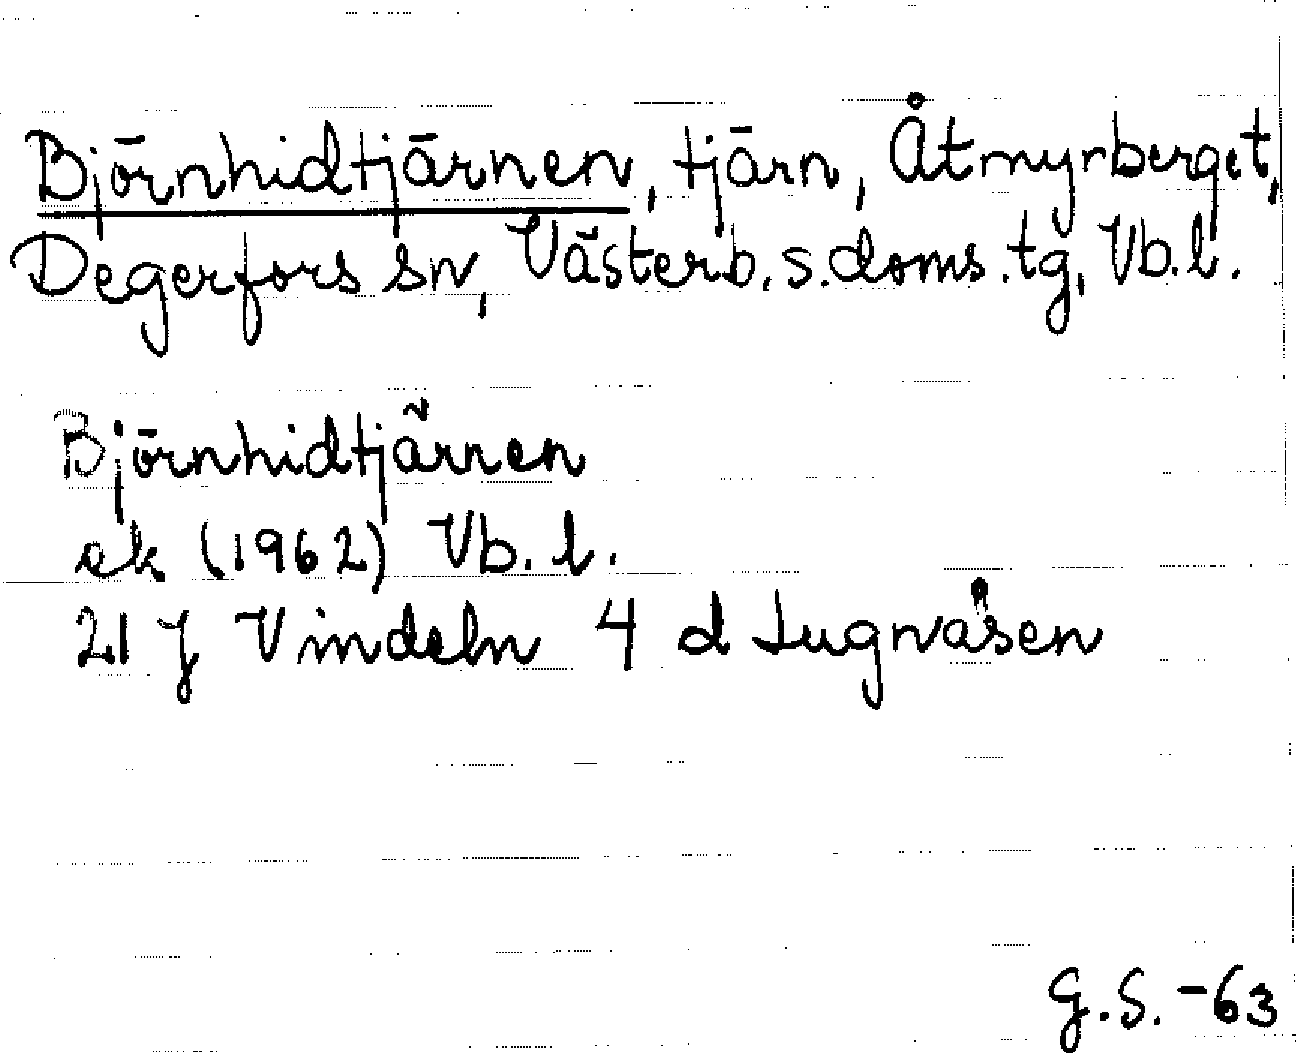 Björnhidtjärnen, tjärn, Åtmyrberget,
Degerfors sn, Västerb. s. doms. tg, Vb. l.
Björnhidtjärnen
ek (1962) Vb. l.
21 J Vindeln 4 d Lugnåsen
G.S. -63